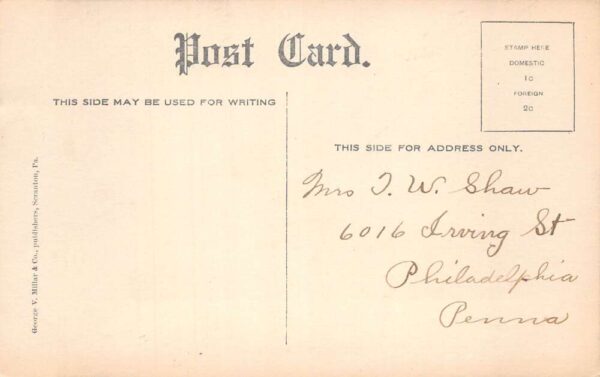 Post Card.
STAMP HERE
DOMESTIC
1c
FOREIGN
2c
THIS SIDE MAY BE USED FOR WRITING
THIS SIDE FOR ADDRESS ONLY.
George V. Millar & Co., publishers, Scranton, Pa.
Mrs J. W. Shaw
6016 Irving St
Philadelphia
Penna